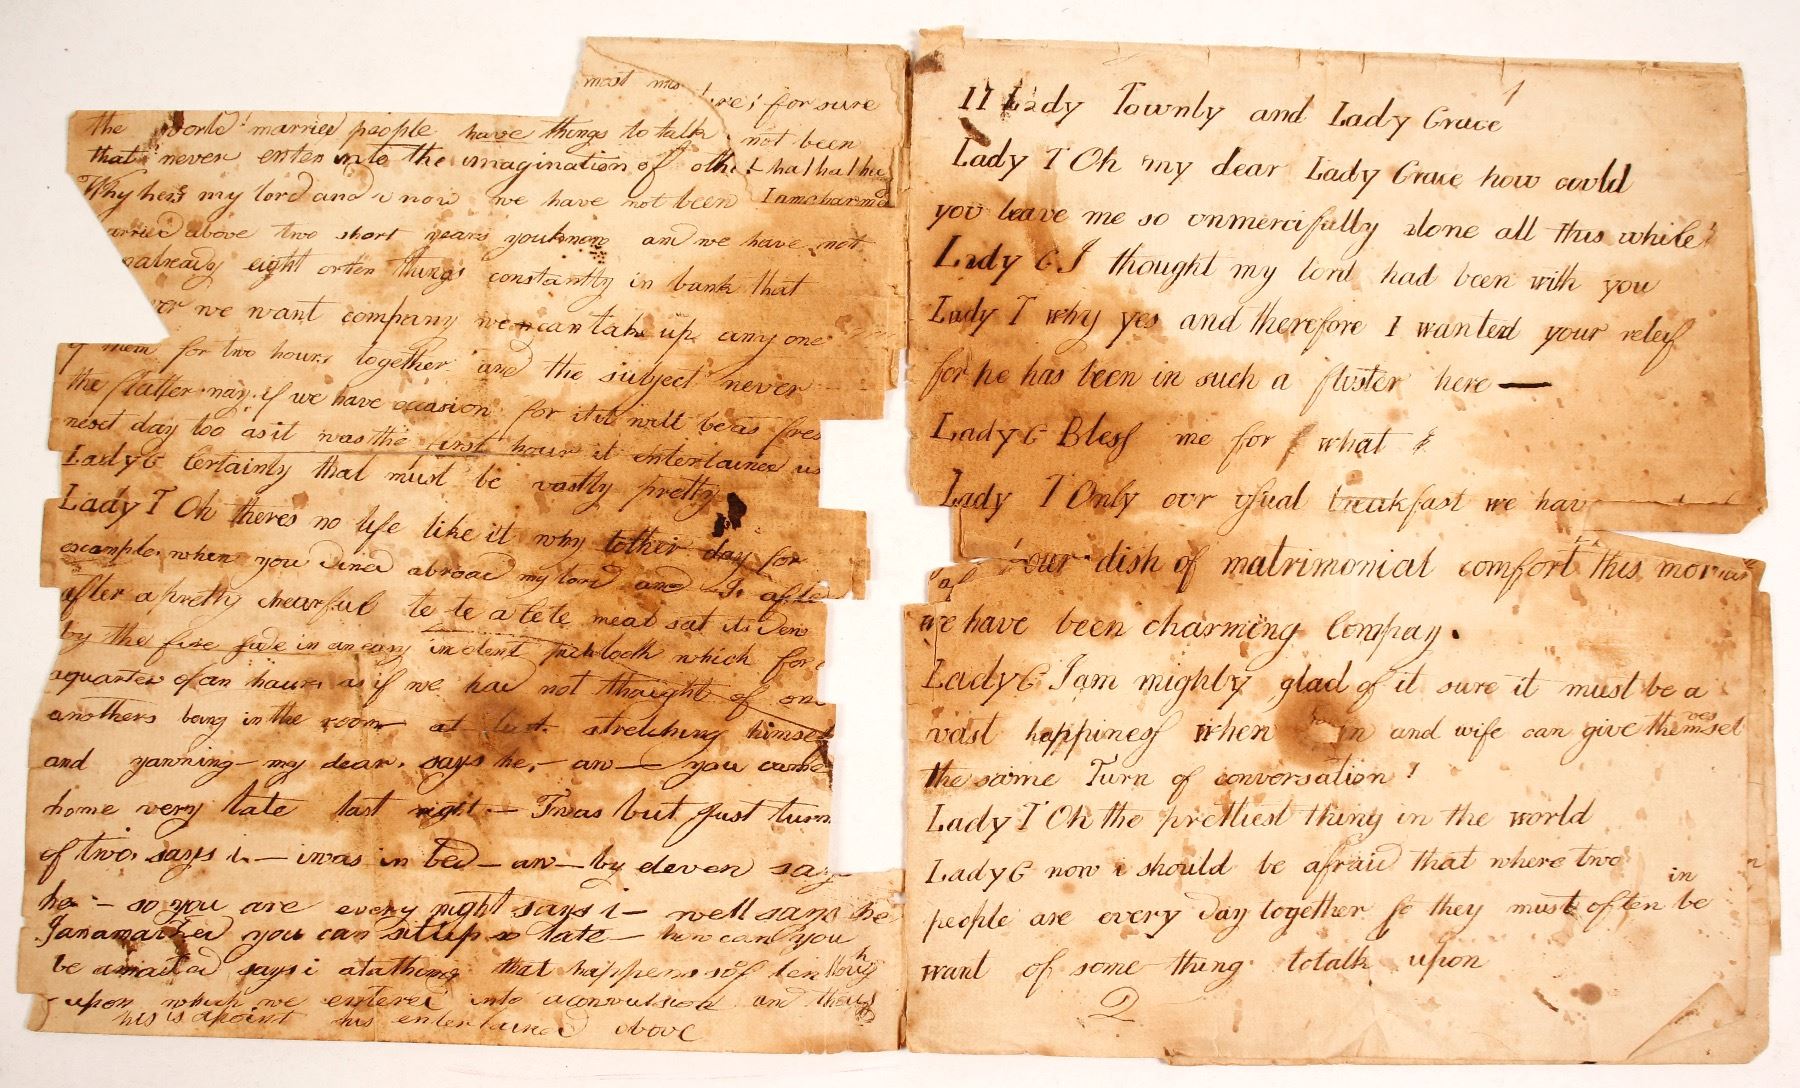 most
ure! for sure
the world! married people have things to talk not been
that never enter into the imagination of oth ! ha ! ha ! ha
Why heres my lord and i now we have not been I am charmed
arried above two short years youknow and we have not
already eight orten things constantly in bank that
ver we want company we can take up any one
f them for two hours together and the subject never
the flatter nay if we have occasion for itit will beas fres
next day too asit wasthe first hour it entertained us
Lady G Certainly that must be vastly pretty
Lady T Oh theres no life like it why tother day for
example when you dined abroad my lord and I afte
after apretty chearful te te a tete meal sat us down
by the fire side in an easy indolent which for
aquarter ofan hour as if we had not thought of one
anothers being in the room at last stretching himself
and yawning – my dear. says he. – aw – you came
home very late last night. – Twas but just turn
of two. says i. – iwas in bed – aw – by eleven say
he – so you are every night says i – well says he
Janamazed you can situp so late – how can you
be amazed says i atathing that happens sof ten
upon which we entered into aconversion and
his is apoint his entertained above
1
11 Lady Townly and Lady Grace
Lady T Oh my dear Lady Grace how could
you leave me so unmercifully alone all this while
Lady G I thought my lord had been with you
Lady T why yes and therefore I wanted your releif
for he has been in such a fluster here —
Lady G Bless me for what
Lady T Only our usual breakfast we hav
our dish of matrimonial comfort this
we have been charming Compay.
Lady G Iam mighty glad of it sure it must be a
vast happiness when and wife can give themselves
the same Turn of conversation !
Lady T Oh the prettiest thing in the world
Lady G now i should be afraid that where two
people are every day together so they must often be in
want of some thing totalk upon
2